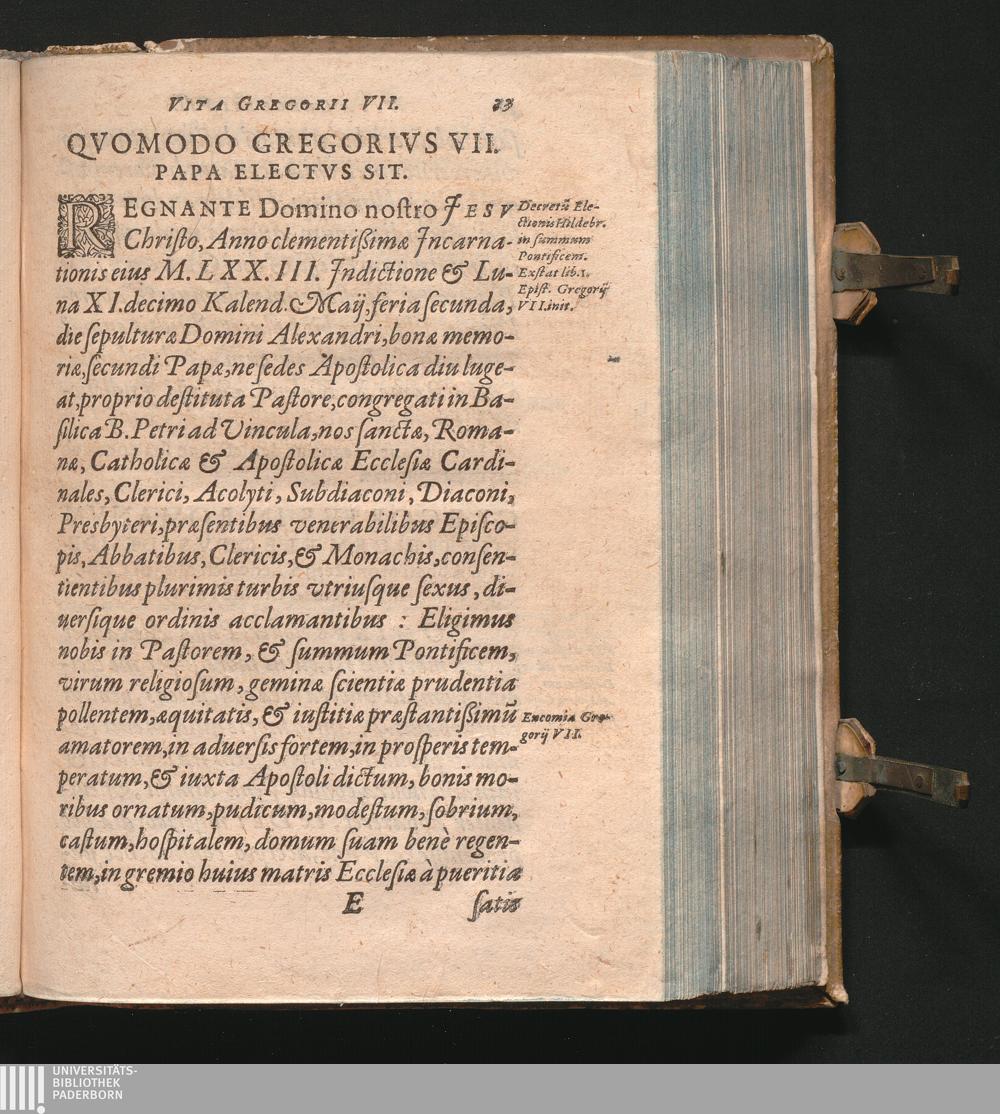 VITA GREGORII VII. 33
QVOMODO GREGORIVS VII.
PAPA ELECTVS SIT.
REGNANTE Domino noſtro JESV
Chriſto, Anno clementißimæ Jncarna-
tionis eius M. LXX. III. Jndictione & Lu-
na XI. decimo Kalend. Maij, feria ſecunda,
die ſepulturæ Domini Alexandri, bonæ memo-
riæ, ſecundi Papæ, ne ſedes Apoſtolica diu luge-
at, proprio deſtituta Paſtore, congregati in Ba-
ſilica B. Petri ad Vincula, nos ſanctæ, Roma-
næ, Catholicæ & Apoſtolicæ Eccleſiæ Cardi-
nales, Clerici, Acolyti, Subdiaconi, Diaconi,
Presbyteri, præſentibus venerabilibus Epiſco-
pis, Abbatibus, Clericis, & Monachis, conſen-
tientibus plurimis turbis vtriuſque ſexus, di-
uerſique ordinis acclamantibus : Eligimus
nobis in Paſtorem, & ſummum Pontificem,
virum religioſum, geminæ ſcientiæ prudentia
pollentem, æquitatis, & iuſtitiæ præſtantißimū
amatorem, in aduerſis fortem, in proſperis tem-
peratum, & iuxta Apoſtoli dictum, bonis mo-
ribus ornatum, pudicum, modeſtum, ſobrium,
caſtum, hoſpitalem, domum ſuam benè regen-
tem, in gremio huius matris Eccleſiæ à pueritia
E ſatis
Decretū Ele-
ctionis Hildebr.
in ſummum
Pontificem.
Exſtat lib. 1.
Epiſt. Gregorij
VII. init.
Encomia Gre-
gorij VII.
UNIVERSITÄTS-
BIBLIOTHEK
PADERBORN